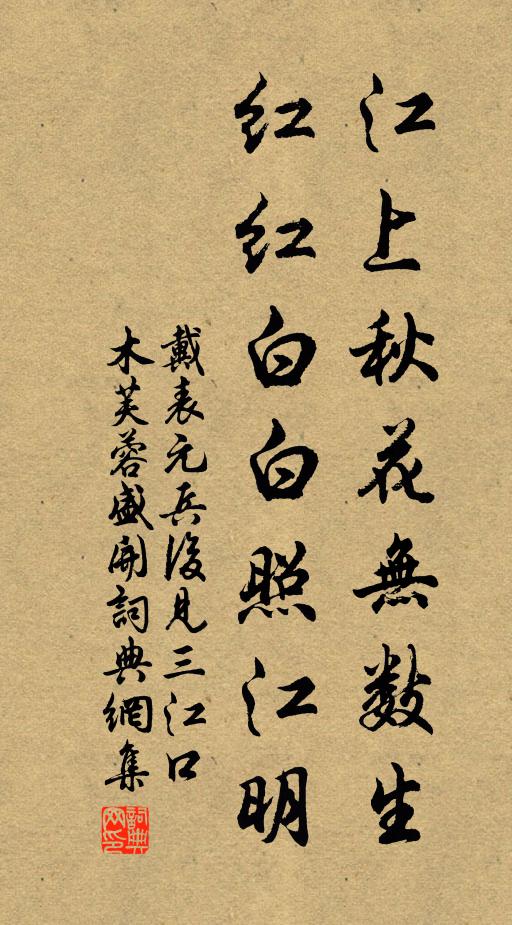 江上秋花無數生
紅紅白白照江明
戴表元兵後見三江口
木芙蓉盛開詞典網集
詞典網印